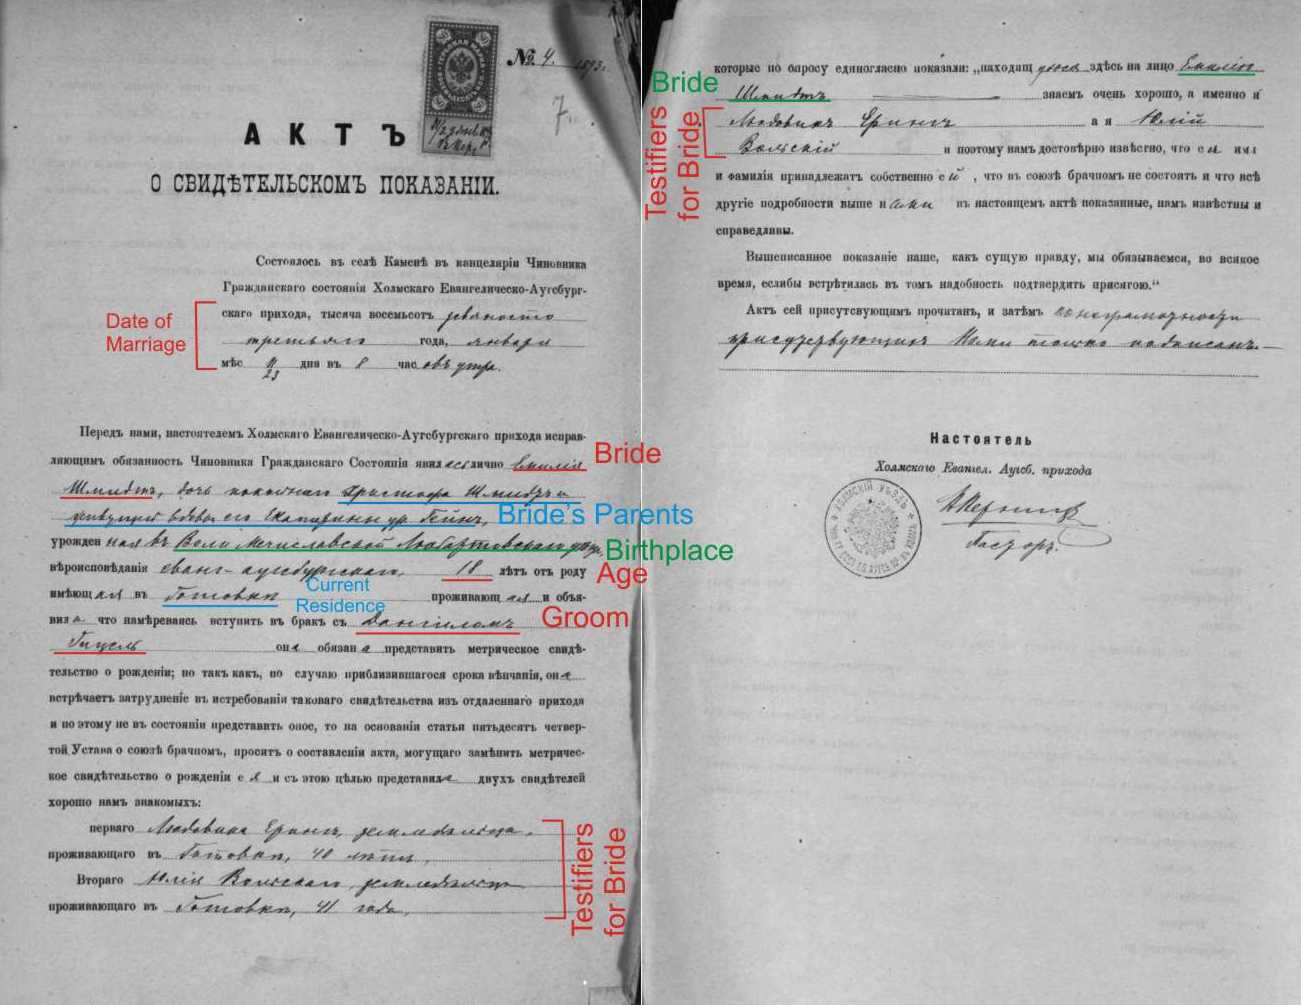 № 4. 1893.
7.
АКТЪ
О СВИДѢТЕЛЬСКОМЪ ПОКАЗАНІИ.
Состоялось въ селѣ Каменѣ въ канцеляріи Чиновника
Гражданскаго состоянія Холмскаго Евангелическо-Аугсбург-
скаго прихода, тысяча восемьсотъ девяносто
третьяго года, января
мѣс 11/23 дня въ 8 час овъ утра.
Date of
Marriage
Передъ нами, настоятелемъ Холмскаго Евангелическо-Аугсбургскаго прихода исправ-
ляющимъ обязанность Чиновника Гражданскаго Состоянія явилась лично Емилія
Bride
Шмидтъ, дочь покойнаго Христофа Шмидтъ и
живущей вдовы его Екатерины ур. Гейнъ,
Bride's Parents
урожден ная въ Воли Мечиславской Любартовскаго уѣзда,
Birthplace
вѣроисповѣданія еванг-аугсбургскаго, 18 лѣтъ отъ роду
Age
Current
Residence
имѣющ ая въ Готовки проживающ ая и объя-
вил а что намѣреваясь вступить въ бракъ съ Даніиломъ
Groom
Гицель она обязан а представить метрическое свидѣ-
тельство о рожденіи; но такъ какъ, по случаю приблизившагося срока вѣнчанія, она
встрѣчаетъ затрудненіе въ истребованіи таковаго свидѣтельства изъ отдаленнаго прихода
и по этому не въ состояніи представить оное, то на основаніи статьи пятьдесятъ четвер-
той Устава о союзѣ брачномъ, проситъ о составленіи акта, могущаго замѣнить метричес-
кое свидѣтельство о рожденіи е я и съ этою цѣлью представила двухъ свидѣтелей
хорошо намъ знакомыхъ:
перваго Людовика Ерингъ, земледѣльца,
проживающаго въ Готовки, 40 лѣтъ,
Втораго Юлія Вольскаго, земледѣльца
проживающаго въ Готовки, 41 года,
Testifiers
for Bride
которые по опросу единогласно показали: „находящ уюся здѣсь на лицо Емилію
Bride
Шмидтъ знаемъ очень хорошо, а именно я
Людовикъ Ерингъ а я Юлій
Вольскій и поэтому намъ достовѣрно извѣстно, что ея имя
Testifiers
for Bride
и фамилія принадлежатъ собственно ей, что въ союзѣ брачномъ не состоитъ и что всѣ
другіе подробности выше нами въ настоящемъ актѣ показанные, намъ извѣстны и
справедливы.
Вышеписанное показаніе наше, какъ сущую правду, мы обязываемся, во всякое
время, еслибы встрѣтилась въ томъ надобность подтвердить присягою."
Актъ сей присутсвующимъ прочитанъ, и затѣмъ по неграмотности
присутствующихъ Нами только подписанъ.
Настоятель
Холмскаго Евангел. Аугсб. прихода
Пасторъ.